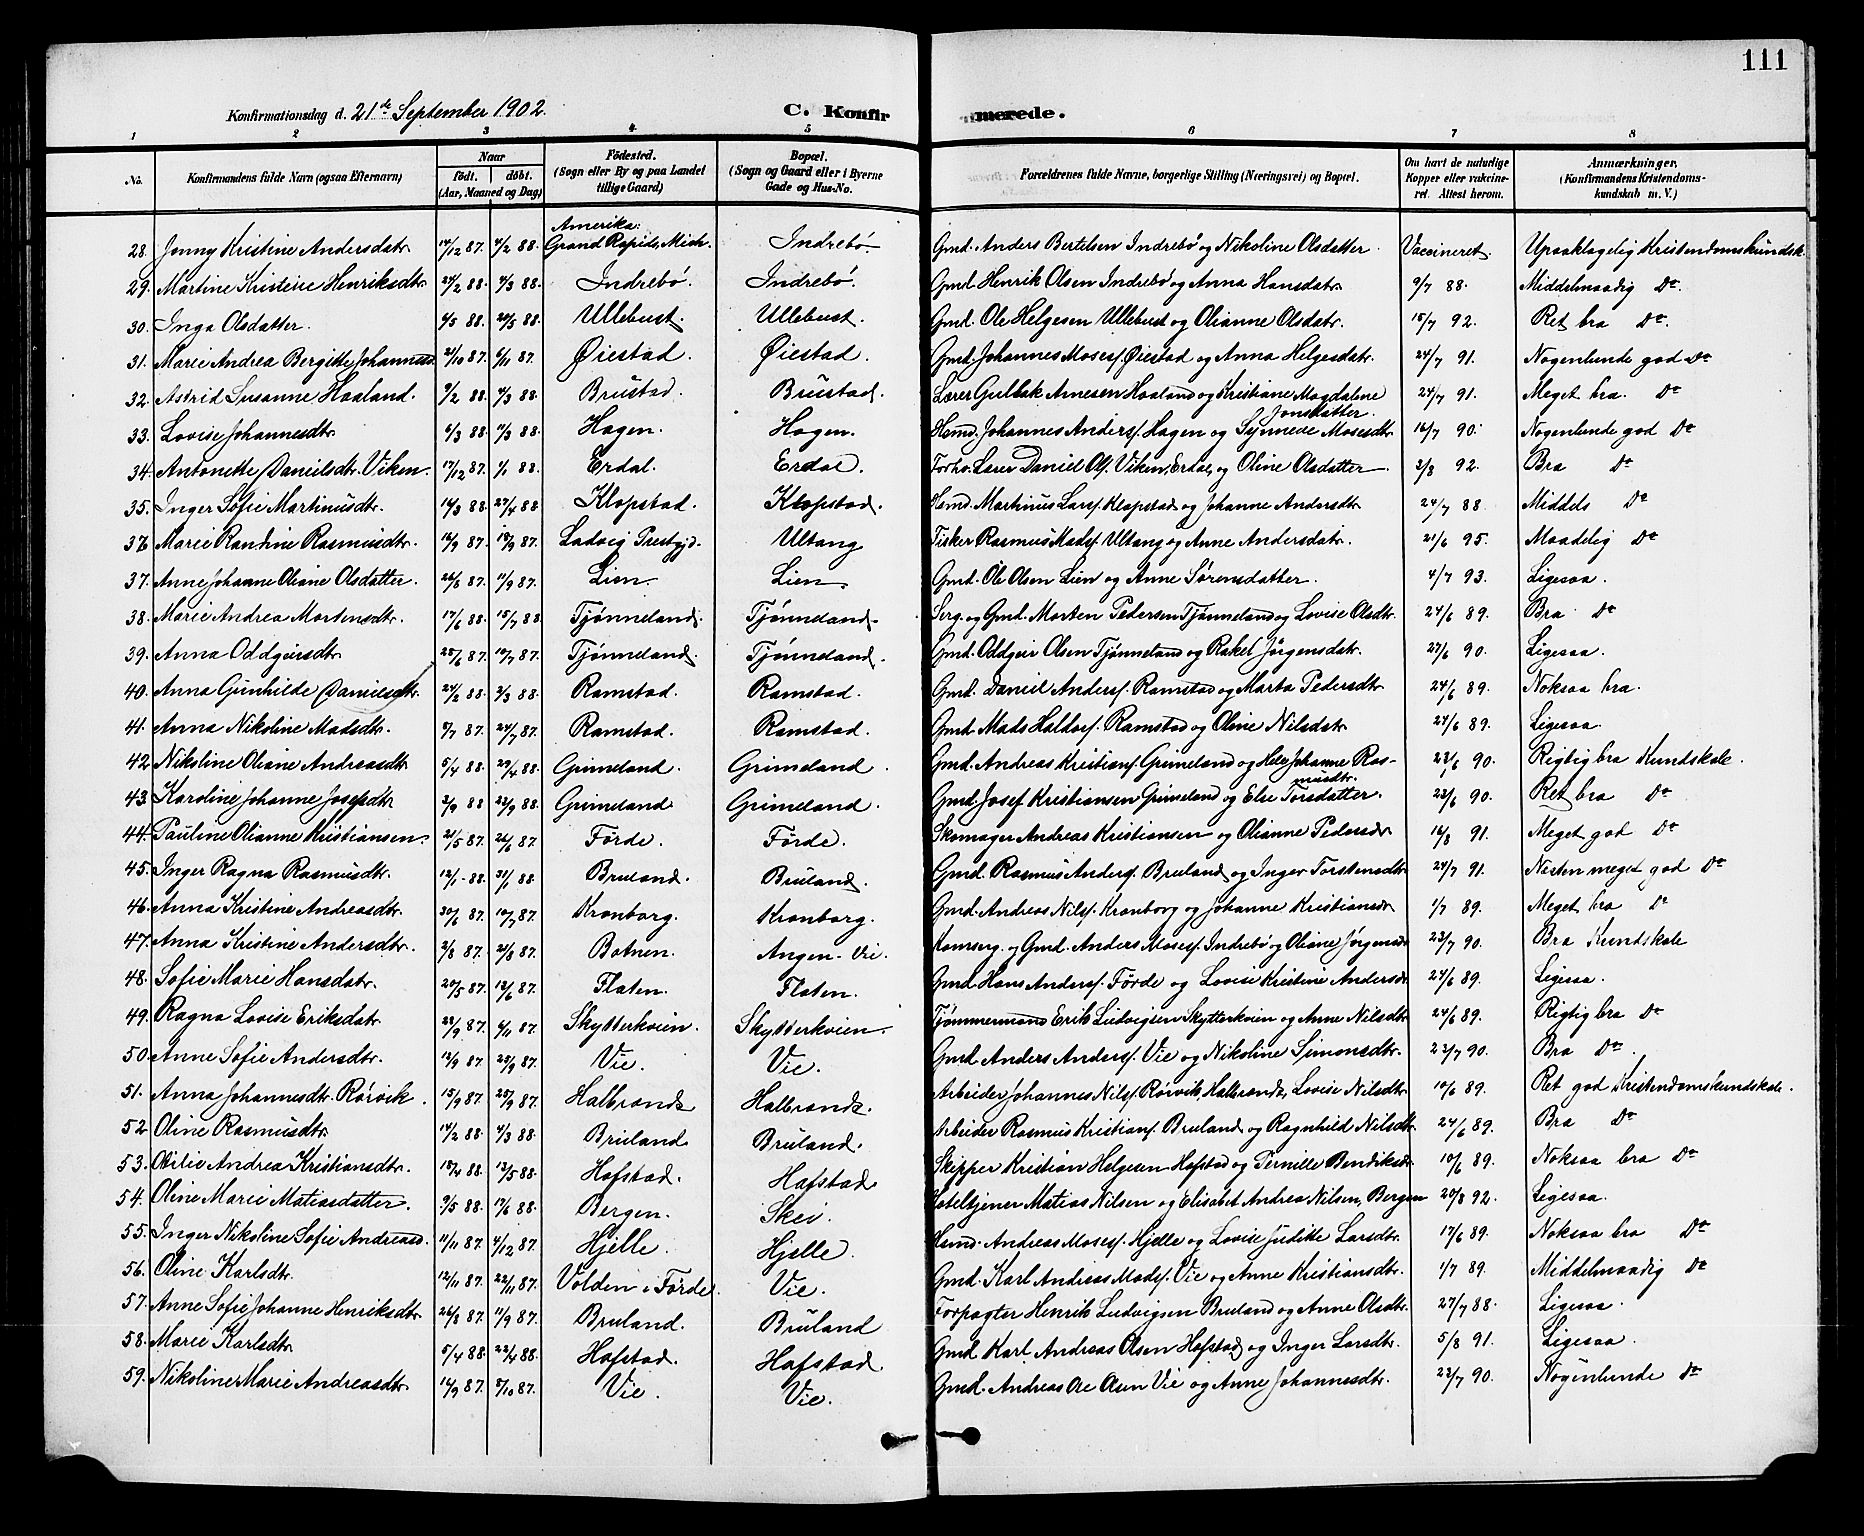 111
Konfirmationsdag d. 21de September 1902.
C. Konfirmerede.
1 2 3 4 5 6 7 8
No. Konfirmandens fulde Navn (ogsaa Efternavn) Naar født. døbt. (Aar, Maaned og Dag) Fødested. (Sogn eller By og paa Landet tillige Gaard) Bopæl. (Sogn og Gaard eller i Byerne Gade og Hus-No. Forældrenes fulde Navne, borgerlige Stilling (Næringsvei) og Bopæl. Om havt de naturlige Kopper eller vaccineret. Attest herom. Anmærkninger, (Konfirmandens Kristendomskundskab m. V.)
28. Jenny Kristine Andersdatr. 14/12 87. 4/2 88. Amerika: Grand Rapids, Mich. Indrebø Gmd. Anders Bertelsen Indrebø og Nikoline Olsdatter. Vaccineret. Upaaklagelig Kristendomskundsk.
29. Martine Kristine Henriksdtr. 24/2 88. 4/3 88. Indrebø. Indrebø. Gmd. Henrik Olsen Indrebø og Anna Hansdatr. 9/7 88. Middelmaadig Do.
30. Inga Olsdatter. 4/5 88. 20/5 88. Ullebust. Ullebust. Gmd. Ole Helgesen Ullebust og Olianne Olsdatr. 15/7 92. Ret bra Do.
31. Marie Andrea Bergitte Johannesd. 21/10 87. 6/11 87. Øiestad. Øiestad. Gmd. Johannes Moses. Øiestad og Anna Helgesdatr. 24/7 91. Nogenlunde god Do
32. Astrid Susanne Haaland. 9/2 88. 4/3 88. Brustad. Brustad. Lærer Gullak Arnesen Haaland og Kristiane Magdalene Jonsdatter. 24/7 91. Meget bra. Do
33. Lovise Johannesdtr. 6/3 88. 11/3 88. Hagen. Hagen. Hsmd. Johannes Anders. Hagen og Synneve Mosesdtr. 16/7 90. Nogenlunde god Do
34. Antonette Danielsdtr. Viken. 17/12 87. 1/1 88. Erdal. Erdal. Forhv. Lærer Daniel Ols. Viken, Erdal, og Oline Olsdatter 3/8 92. Bra Do
35. Inger Sofie Martinusdtr. 14/3 88. 22/4 88 Klopstad. Klopstad. Hsmd. Martinus Lars. Klopstad og Johanne Andersdtr 24/7 88. Middels Do
36 Marie Randine Rasmusdtr. 12/9 87. 18/9 87. Ladvig Prestgjd. Ultang Fisker Rasmus Mads. Ultang og Anne Andersdatr. 21/6 95. Maadelig Do
37. Anne Johanne Oliane Olsdatter. 26/6 87. 11/9 87. Lien. Lien. Gmd. Ole Olsen Lien og Anne Sørensdatter. 4/7 93. Ligesaa.
38. Marie Andrea Mortensdtr. 17/6 88. 15/7 88. Tjønneland. Tjønneland. Serg. og Gmd. Morten Pedersen Tjønneland og Lovise Olsdtr. 24/6 89. Bra Do
39. Anna Oddgeirsdtr 25/6 87. 10/7 87. Tjønneland. Tjønneland. Gmd. Oddgeir Olsen Tjønneland og Rakel Jørgensdatr. 27/6 90. Ligesaa.
40. Anna Gunhilde Danielsdtr. 24/2 88. 2/3 88. Ramstad. Ramstad. Gmd. Daniel Anders. Ramstad og Marta Pedersdtr 24/6 89. Noksaa bra.
41. Anna Nikoline Madsdtr. 5/7 87. 24/7 87. Ramstad. Ramstad. Gmd. Mads Haldors. Ramstad og Oline Nilsdatr 24/6 89. Ligesaa.
42. Nikoline Oliane Andreasdtr 5/4 88. 29/4 88. Grimeland. Grimeland. Gmd. Andreas Kristians. Grimeland og Hele Johanne Rasmusdtr. 23/6 90. Rigtig bra Kundskab.
43. Karoline Johanne Josefsdtr 2/9 88 23/9 88. Grimeland Grimeland. Gmd. Josef Kristiansen Grimeland og Else Torsdatter. 23/6 90. Ret bra Do
44. Pauline Olianne Kristiansen. 21/5 87. 26/6 87. Førde. Førde. Skomager Andreas Kristiansen og Olianne Pedersdr 16/8 91. Meget god Do
45. Inger Ragna Rasmusdtr. 12/1 88. 31/1 88. Bruland. Bruland. Gmd. Rasmus Anders. Bruland og Inger Torstensdtr 24/7 91. Næsten meget god Do
46. Anna Kristine Andreasdtr. 30/6 87. 10/7 87. Kronborg. Kronborg. Gmd. Andreas Nils. Kronborg og Johanne Kristiansdr 1/7 89. Meget bra Do
47. Anna Kristine Andersdtr. 2/8 87. 21/8 87. Botnen. Angen-Vie. Komserg. og Gmd. Anders Moses. Indrebø og Oliane Jørgensdr 23/7 90. Bra Kundskab
48. Sofie Marie Hansdatr. 20/5 87. 12/6 87. Flaten. Flaten. Gmd Hans Anders. Førde og Lovise Kristine Andersdr 24/6 89. Ligesaa.
49. Ragna Lovise Eriksdatr. 22/9 87. 6/11 87. Skytterkvien. Skytterkvien. Tjømmermand Erik Ludvigsen Skytterkvien og Anne Nilsdtr 24/6 89. Rigtig bra Do
50. Anne Sofie Andersdtr. 12/9 87. 25/9 87. Vie. Vie. Gmd. Anders Anders. Vie og Nikoline Simonsdtr. 23/7 90. Bra Do.
51. Anna Johannesdtr. Rørvik. 15/9 87. 25/9 87. Halbrands Halbrands. Arbeider Johannes Nils. Rørvik, Halbrands, Lovise Nilsdtr. 10/6 89. Ret god Kristendomskundskab.
52. Oline Rasmusdtr. 14/2 88. 4/3 88. Bruland Bruland. Arbeider Rasmus Kristians. Bruland og Ragnhild Nilsdtr 24/6 89. Bra Do
53. Otilie Andrea Kristiansdtr. 18/4 88. 13/5 88. Hafstad. Hafstad Skipper Kristian Helgesen Hafstad og Pernille Bendiksdr. 10/6 89. Noksaa bra Do
54. Oline Marie Matiasdatter. 9/5 88. 17/6 88. Bergen. Skei. Hoteltjener Matias Nilsen og Elisabet Andrea Nilsen, Bergen 20/8 92. Ligesaa.
55. Inger Nikoline Sofie Andreasd. 11/11 87. 4/12 87. Hjelle. Hjelle. Hsmd. Andreas Moses. Hjelle og Lovise Juditte Larsdtr. 17/6 89. Noksaa bra Do
56. Oline Karlsdtr. 12/11 87. 22/11 87. Volden i Førde. Vie. Gmd. Karl Andreas Mads. Vie og Anne Kristiansdtr. 1/7 89. Middelmaadig Do
57. Anne Sofie Johanne Henriksdtr. 26/8 87. 11/9 87. Bruland. Bruland Forpagter Henrik Ludvigsen Bruland og Anne Olsdtr. 27/7 88. Ligesaa.
58. Marie Karlsdtr 5/4 88. 22/4 88. Hafstad. Hafstad. Gmd Karl Andreas Olsen Hafstad og Inger Larsdtr. 5/8 91. Ligesaa.
59. Nikoline Marie Andreasdtr. 14/9 87. 5/10 87. Vie. Vie. Gmd. Andreas Ole Olsen Vie og Anne Johannesdtr. 23/7 90. Nogenlunde Do